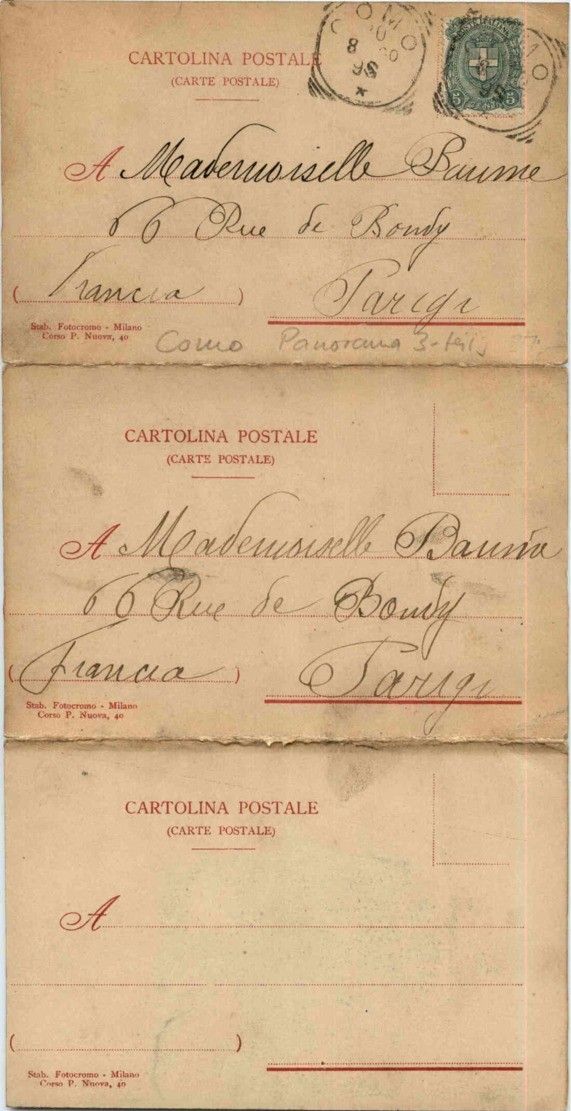 COMO
8
96
5 5
CARTOLINA POSTALE
(CARTE POSTALE)
A Mademoiselle Baume
66 Rue de Bondy
(Francia) Parigi
Stab. Fotocromo - Milano
Corso P. Nuova, 40
Como Panorama 3-teilig
CARTOLINA POSTALE
(CARTE POSTALE)
A Mademoiselle Baume
66 Rue de Bondy
(Francia) Parigi
Stab. Fotocromo - Milano
Corso P. Nuova, 40
CARTOLINA POSTALE
(CARTE POSTALE)
A
( )
Stab. Fotocromo - Milano
Corso P. Nuova, 40